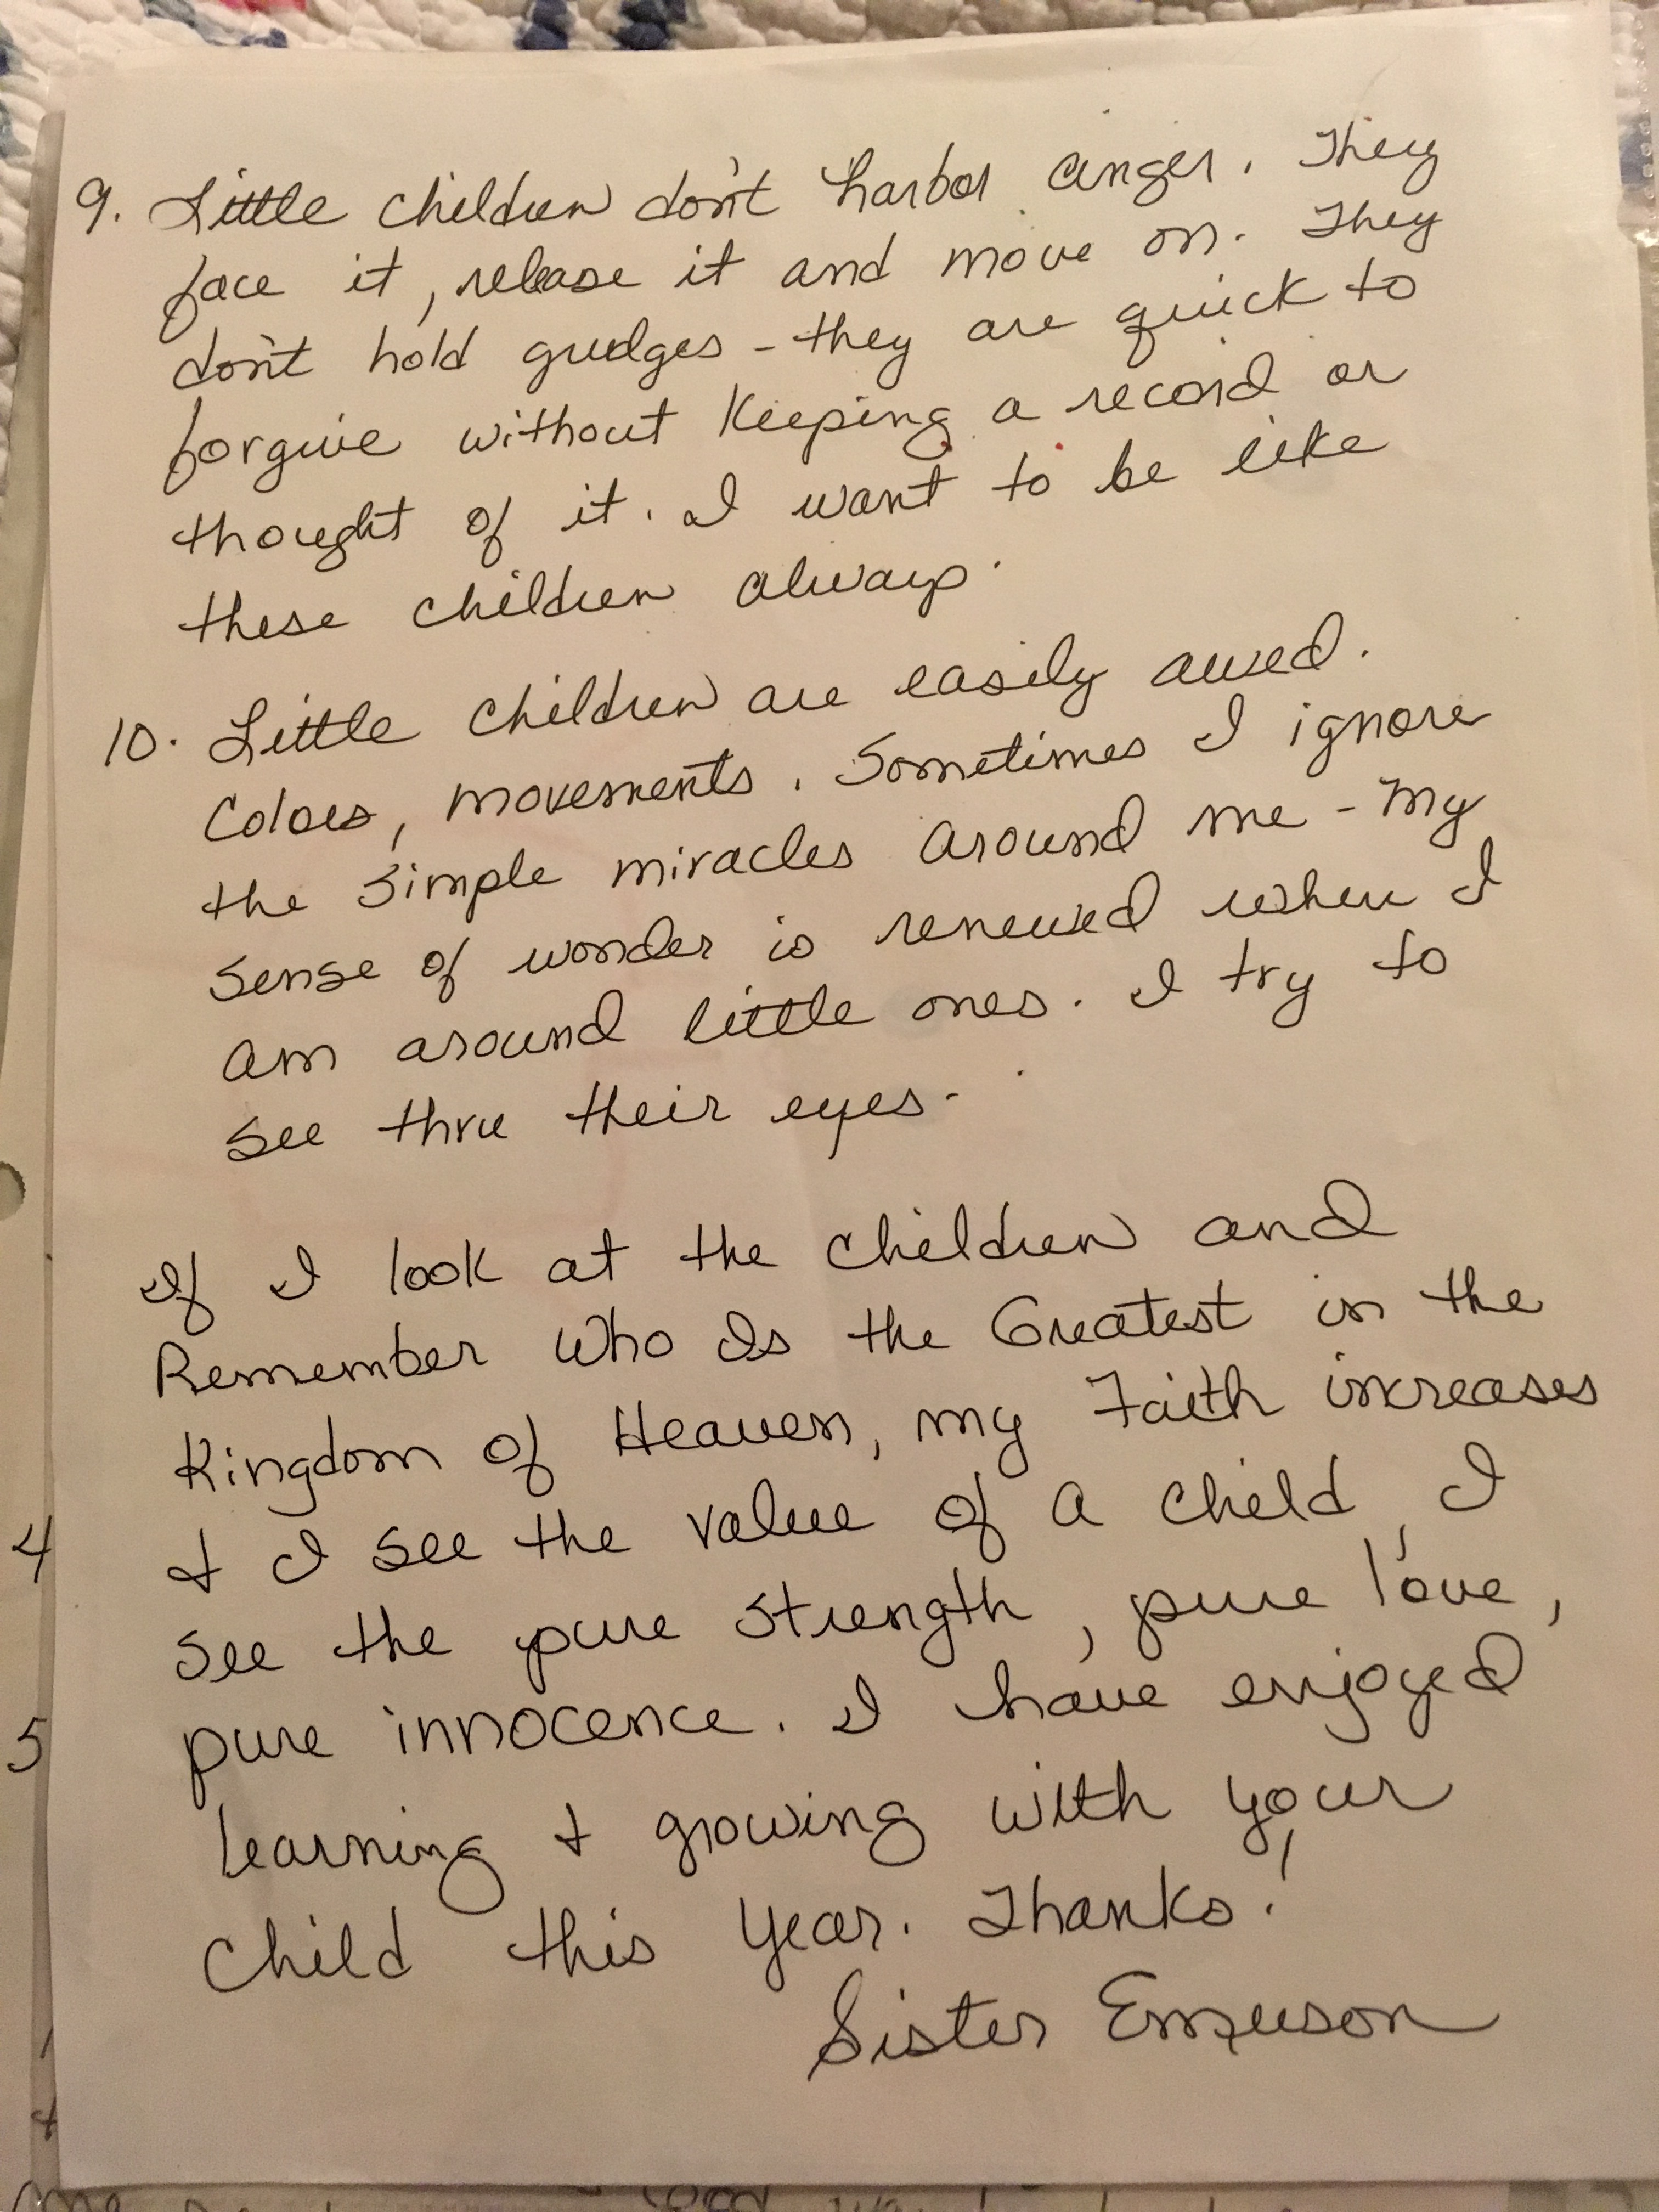 9. Little children don't harbor anger. They
face it, release it and move on. They
don't hold grudges - they are quick to
forgive without keeping a record or
thought of it. I want to be like
these children always.
10. Little children are easily awed.
Colors, movements. Sometimes I ignore
the simple miracles around me - My
sense of wonder is renewed when I
am around little ones. I try to
see thru their eyes.
If I look at the children and
Remember Who Is the Greatest in the
Kingdom of Heaven, my Faith increases
4
& I see the value of a child, I
see the pure strength, pure love,
5
pure innocence. I have enjoyed
learning & growing with your
child this year. Thanks!
Sister Emerson